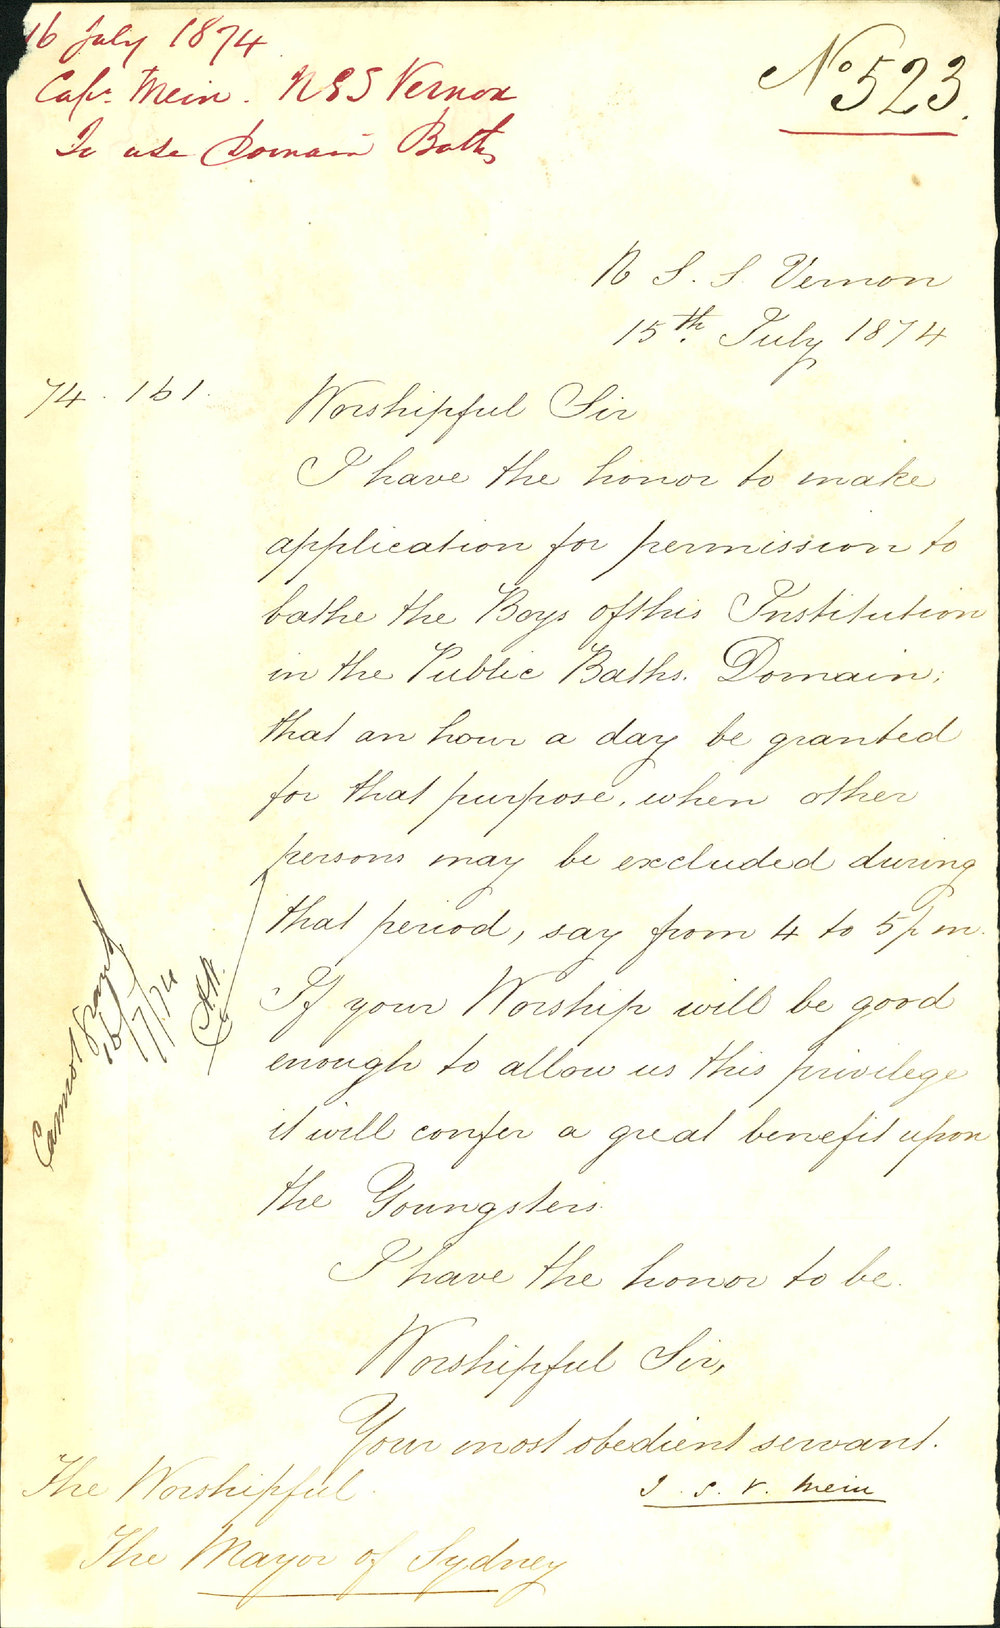 16 July 1874
Capt. Mein. NSS Vernon
To use Domain Baths
No 523.
N S. S. Vernon
15th. July 1874
74. 161.
Worshipful Sir
I have the honor to make
application for permission to
bathe the Boys of this Institution
in the Public Baths. Domain;
that an hour a day be granted
for that purpose, when other
persons may be excluded during
that period, say from 4 to 5 p m.
If your Worship will be good
enough to allow us this privilege
it will confer a great benefit upon
the Youngsters.
I have the honor to be.
Worshipful Sir,
Your most obedient servant.
J. S. V. Mein
The Worshipful.
The Mayor of Sydney
Cannot grant
16/7/74